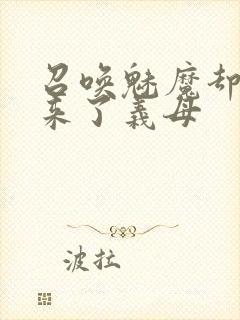 召唤魅魔却
来了義母
波拉